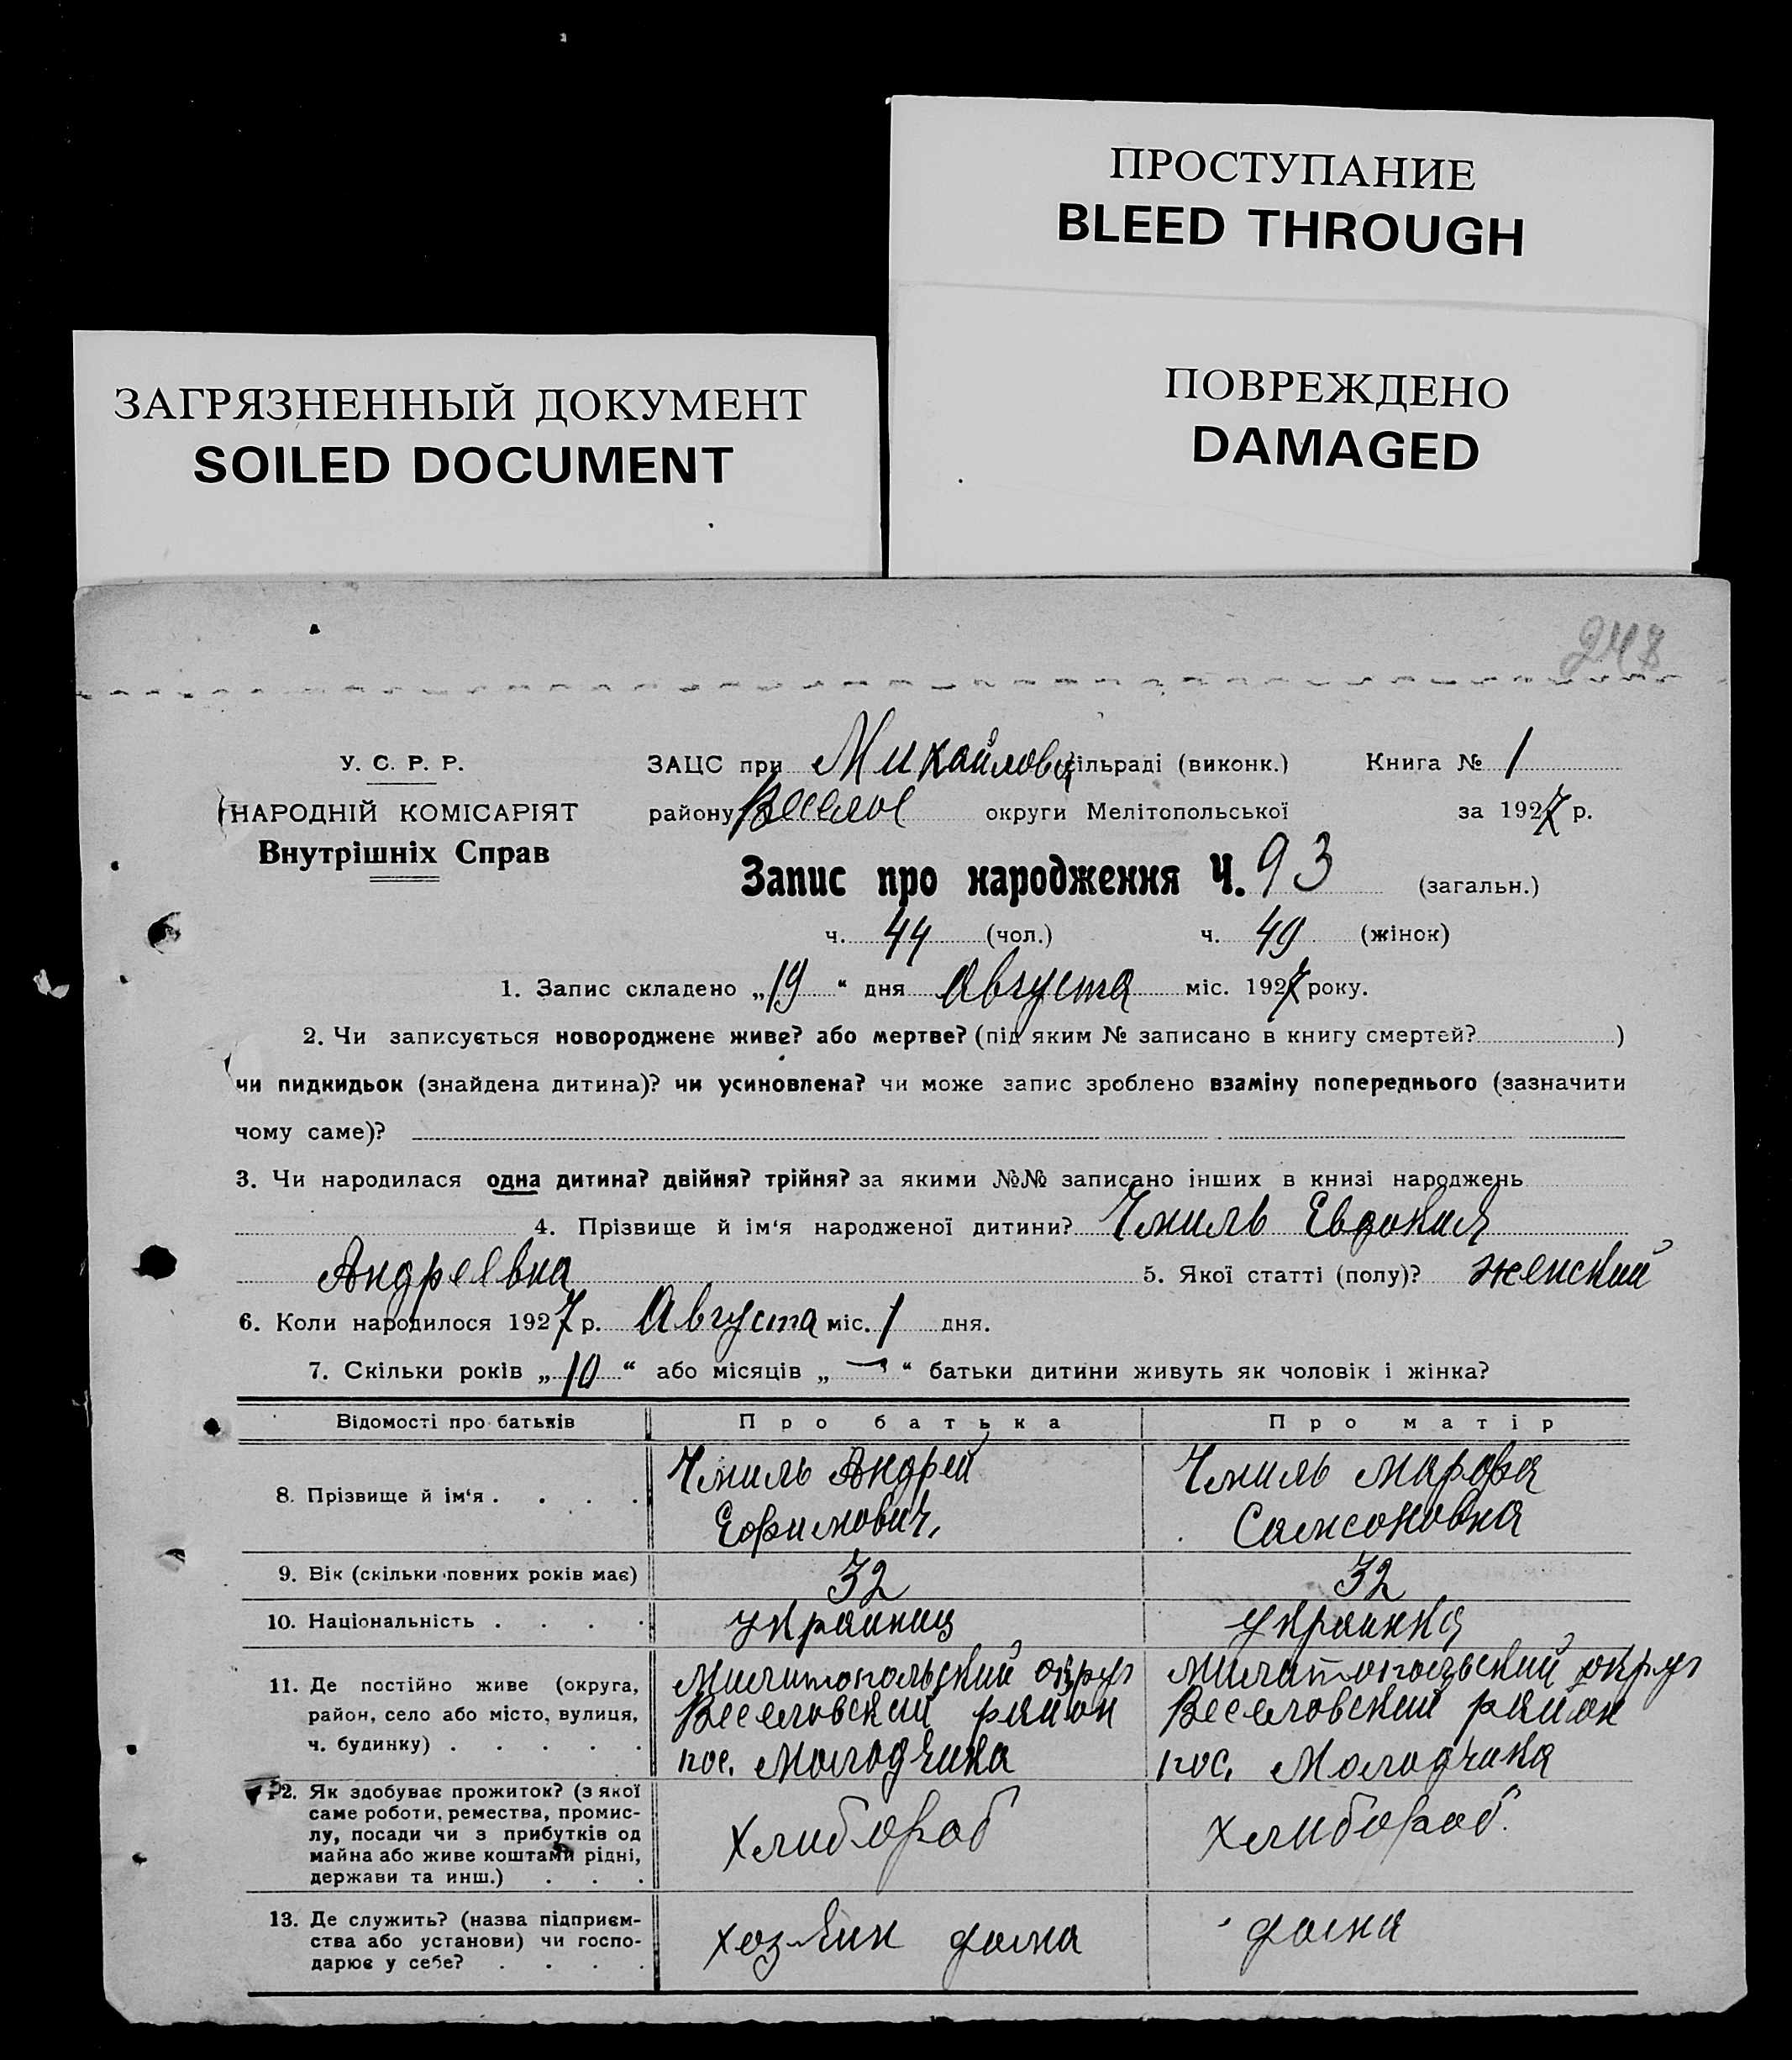 ПРОСТУПАНИЕ
BLEED THROUGH
ПОВРЕЖДЕНО
DAMAGED
ЗАГРЯЗНЕННЫЙ ДОКУМЕНТ
SOILED DOCUMENT
248
У. С. Р. Р.
НАРОДНІЙ КОМІСАРІЯТ
Внутрішніх Справ
ЗАЦС при Михайловц сільраді (виконк.) Книга № 1
району Веселое округи Мелітопольської за 1927 р.
Запис про народження Ч. 93 (загальн.)
ч. 44 (чол.) ч. 49 (жінок)
1. Запис складено „19“ дня Августа міс. 1927 року.
2. Чи записується новороджене живе? або мертве? (під яким № записано в книгу смертей? )
чи пидкидьок (знайдена дитина)? чи усиновлена? чи може запис зроблено взаміну попереднього (зазначити
чому саме)?
3. Чи народилася одна дитина? двійня? трійня? за якими №№ записано інших в книзі народжень
4. Прізвище й ім‘я народженої дитини? Чмиль Евдокия
Андреевна 5. Якої статті (полу)? женский
6. Коли народилося 1927 р. Августа міс. 1 дня.
7. Скільки років „10“ або місяців „—“ батьки дитини живуть як чоловік і жінка?
Відомості про батьків Про батька Про матір
8. Прізвище й ім‘я . . . . Чмиль Андрей Чмиль Марфа
Ефимович, Самсоновна
9. Вік (скільки повних років має) 32 32
10. Національність . . . . украинец украинка
11. Де постійно живе (округа, Милитопольский округ Милитопольский округ
район, село або місто, вулиця, Веселовский район Веселовский район
ч. будинку) . . . . . пос. Молодчина пос. Молодчина
12. Як здобуває прожиток? (з якої
саме роботи, ремества, промис-
лу, посади чи з прибутків од хлибороб хлибороб.
майна або живе коштами рідні,
держави та инш.) . . .
13. Де служить? (назва підприєм-
ства або установи) чи госпо- хозяин дома дома
дарює у себе? . . . .